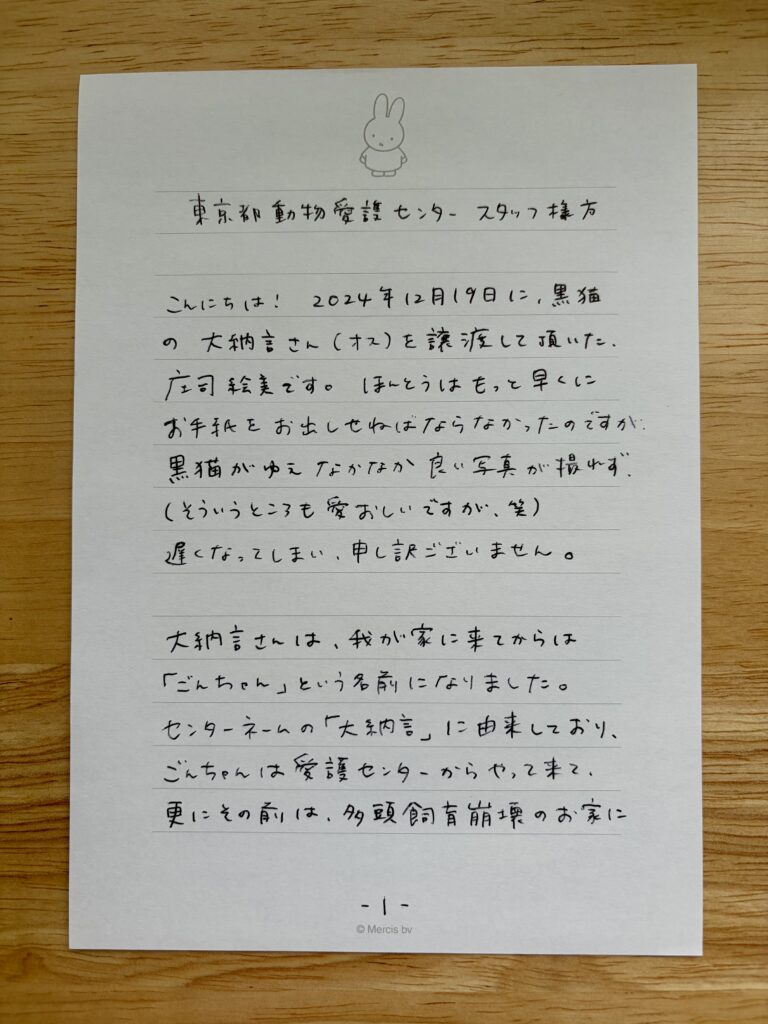 東京都動物愛護センター スタッフ様方
こんにちは! 2024年12月19日に、黒猫
の 大納言さん(オス)を譲渡して頂いた、
庄司絵美です。 ほんとうはもっと早くに
お手紙をお出しせねばならなかったのですが、
黒猫がゆえ なかなか 良い写真が撮れず、
(そういうところも愛おしいですが、笑)
遅くなってしまい、申し訳ございません。
大納言さんは、我が家に来てからは
「ごんちゃん」という名前になりました。
センターネームの「大納言」に由来しており、
ごんちゃんは愛護センターからやって来て、
更にその前は、多頭飼育崩壊のお家に
-1-
© Mercis bv